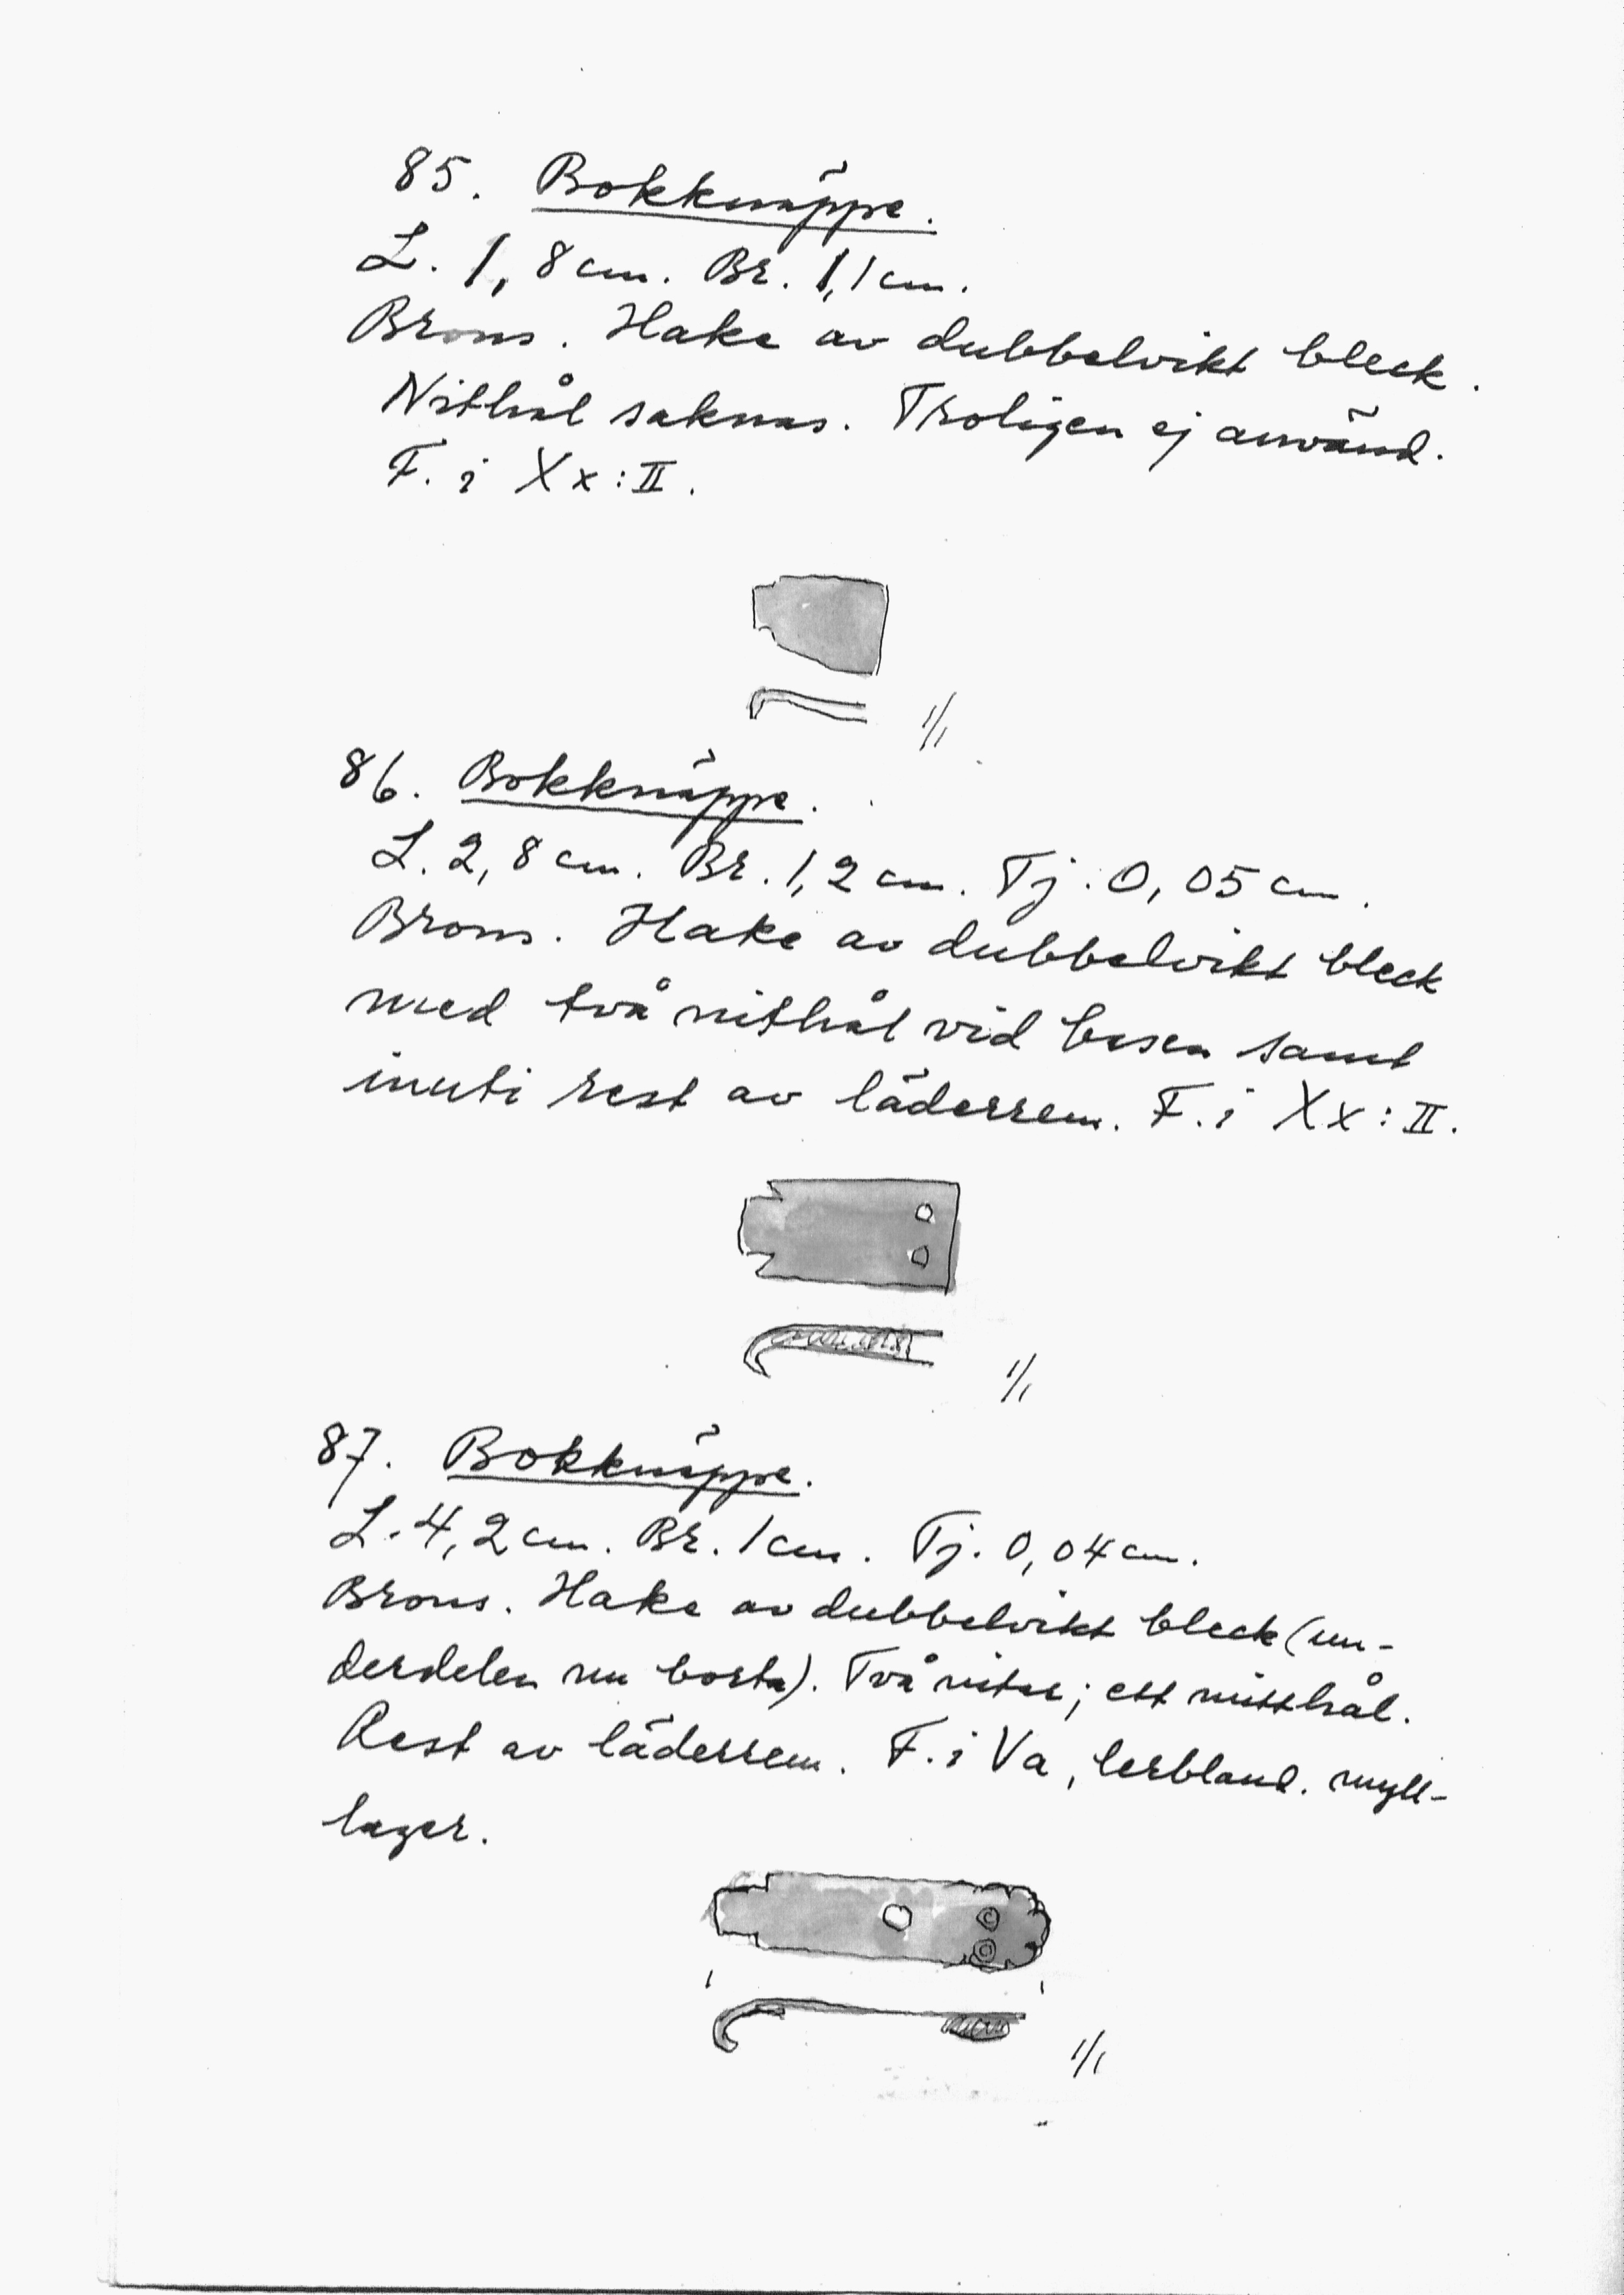 85. Bokknäppe.
L. 1,8 cm. Br. 1,1 cm.
Brons. Hake av dubbelvikt bleck.
Nithål saknas. Troligen ej använd.
F. i Xx:II.
1/1
86. Bokknäppe.
L. 2,8 cm. Br. 1,2 cm. Tj. 0,05 cm.
Brons. Hake av dubbelvikt bleck
med två nithål vid basen samt
inuti rest av läderrem. F. i Xx:II.
1/1
87. Bokknäppe.
L. 4,2 cm. Br. 1 cm. Tj. 0,04 cm.
Brons. Hake av dubbelvikt bleck (un-
derdelen nu borta). Två nitar; ett mitthål.
Rest av läderrem. F. i Va, lerbland. myll-
lager.
1/1